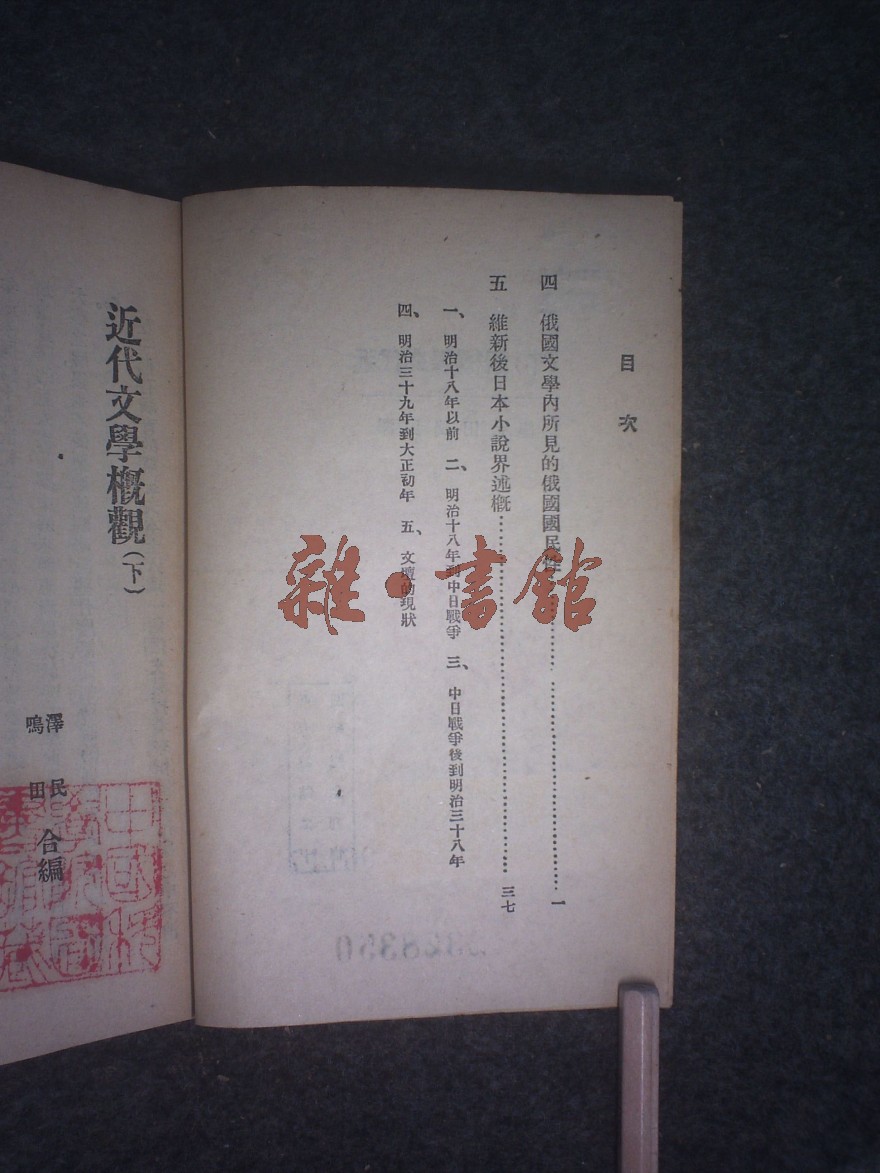 目次
四　俄國文學內所見的俄國國民性……一
五　維新後日本小說界述概……三七
一、明治十八年以前　二、明治十八年到中日戰爭　三、中日戰爭後到明治三十八年
四、明治三十九年到大正初年　五、文壇的現狀
近代文學概觀（下）
澤民
鳴田
合編
雜·書館